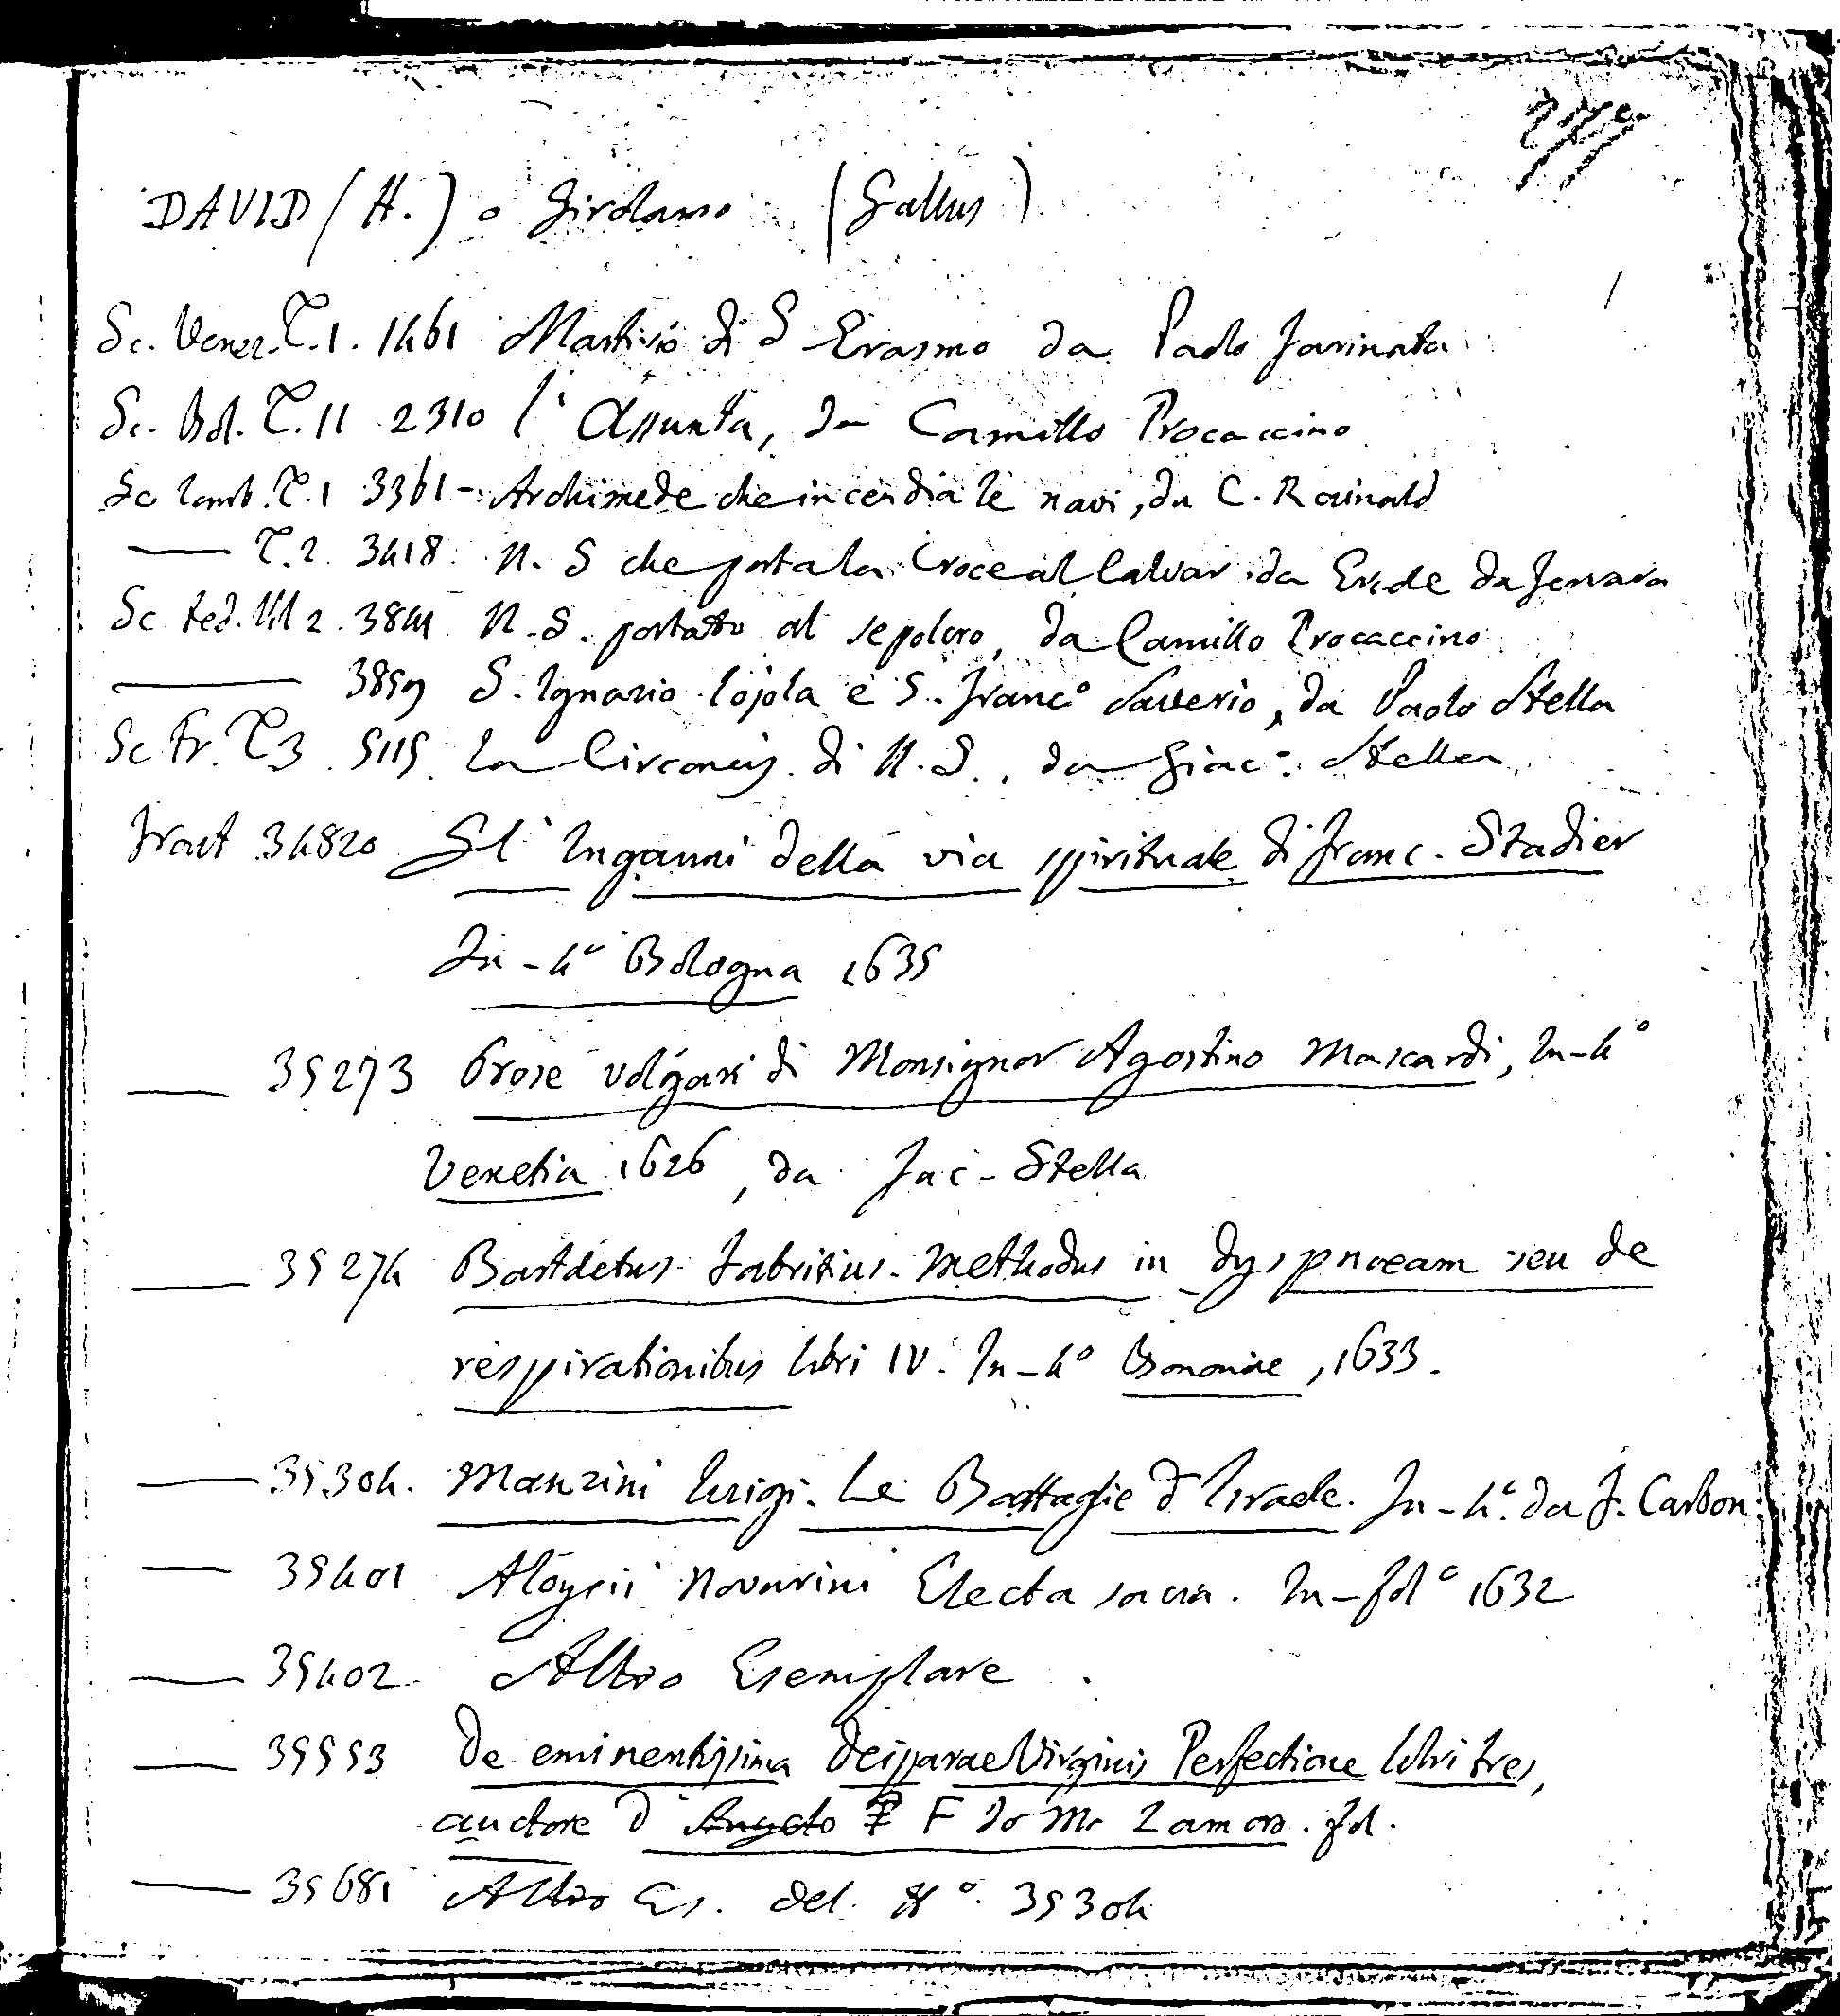 DAVID (H.) o Girolamo (Gallus)
Sc. Venez. T. 1. 1461 Martirio di S Erasmo da Paolo Farinata
Sc. Bol. T. 11 2310 l'Assunta, da Camillo Procaccino
Sc Lomb. T. 1 3361 - Archimede che incendia le navi, da C. Rainald
— T. 2. 3418. N. S che porta la Croce al Calvar. da Erede da Ferrara
Sc ted. 2. N. S. portato al sepolcro, da Camillo Procaccino
— 3859 S. Ignazio Lojola e S. Franc.º Saverio, da Paolo Stella
Sc Fr. T. 3 5115. La Circoncis. di N. S., da Giac.º Stella
Fract 34820 Gl'Inganni della via spirituale di Franc. Stadier
In-4º Bologna 1635
— 35273 Prose volgari di Monsignor Agostino Mascardi, In-4º
Venetia 1626, da Jac-Stella
— 35274 Bartoletus Fabritius. Methodus in dyspnoeam seu de
respirationibus libri IV. In-4º Bononiae, 1633.
— 35304. Manzini Luigi. Le Battaglie d'Israele. In-4º. da F. Carbon
— 35401 Aloysii Novarini Electa sacra. In-folº 1632
— 35402 Altro Esemplare.
— 35553 De eminentissima Deiparae Virginis Perfectione libri tres,
auctore D F Jo Mr Zamoro. fol.
— 35681 Altro Es. del Nº. 35304